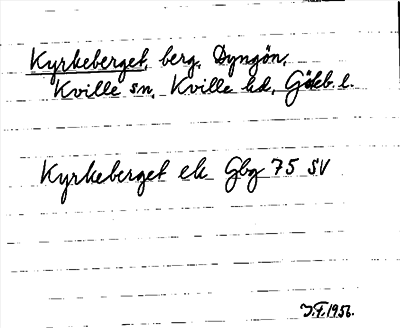 Kyrkeberget, berg, Dyngön,
Kville sn, Kville hd, Göteb. l.
Kyrkeberget ek Gbg 75 SV
J.F. 1956.